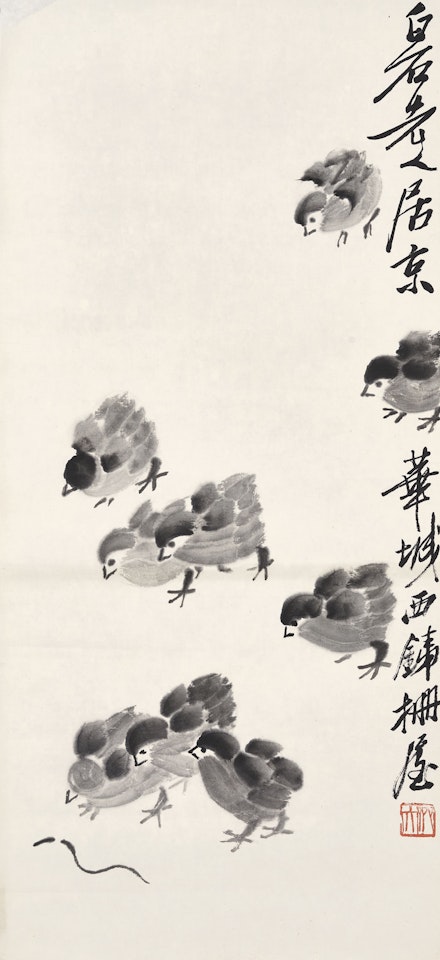 白石老人居京華城西鐵柵屋